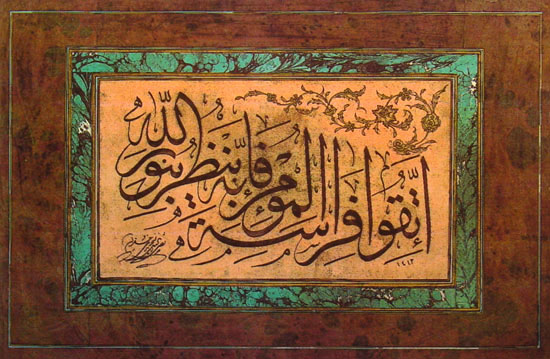 اتقوا فراسة المؤمن فإنه ينظر بنور الله
١٤١٢